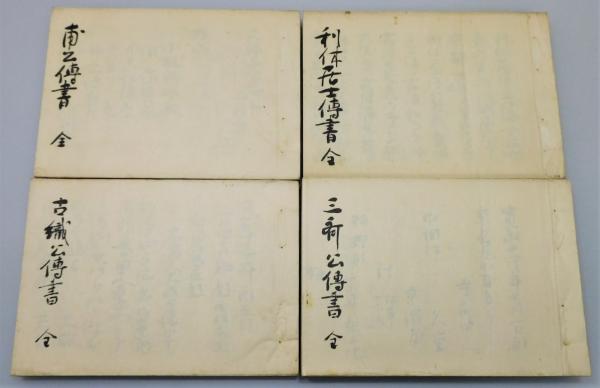 利休居士傳書 全
甫公傳書 全
三斎公傳書 全
古織公傳書 全